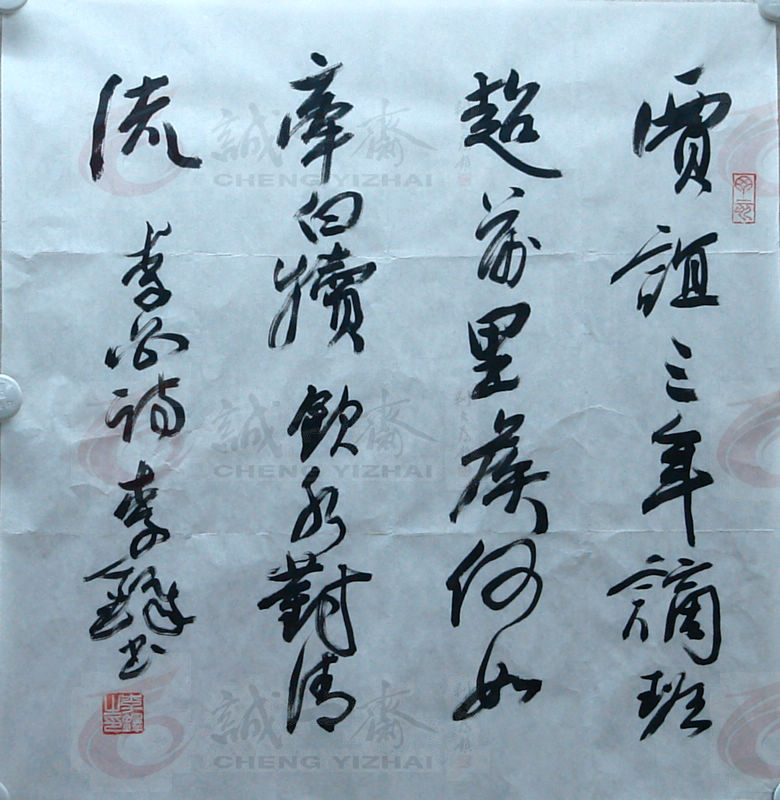 賈誼三年謫班
超萬里侯何如
牽白犢飲水對清
流 李白詩 李鐸書
李鐸之印
誠 齋
CHENG YIZHAI
誠 齋
CHENG YIZHAI
誠 齋
CHENG YIZHAI